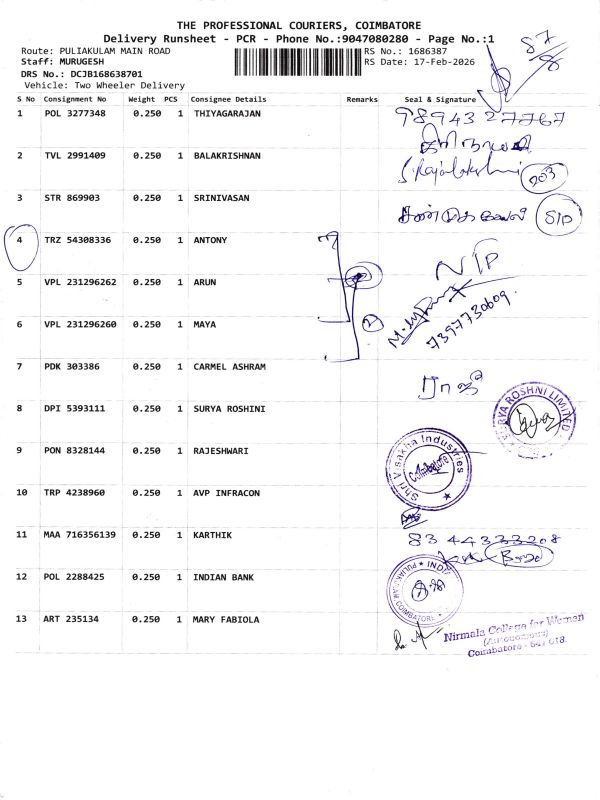 THE PROFESSIONAL COURIERS, COIMBATORE
Delivery Runsheet - PCR - Phone No.:9047080280 - Page No.:1
Route: PULIAKULAM MAIN ROAD
RS No.: 1686387
Staff: MURUGESH
RS Date: 17-Feb-2026
DRS No.: DCJB168638701
Vehicle: Two Wheeler Delivery
87/98
S No Consignment No Weight PCS Consignee Details Remarks Seal & Signature
1 POL 3277348 0.250 1 THIYAGARAJAN 9894327767
2 TVL 2991409 0.250 1 BALAKRISHNAN
S. Rajalakshmi 203
3 STR 869903 0.250 1 SRINIVASAN S/P
4 TRZ 54308336 0.250 1 ANTONY N/P
5 VPL 231296262 0.250 1 ARUN
6 VPL 231296260 0.250 1 MAYA 2 7397730609
7 PDK 303386 0.250 1 CARMEL ASHRAM ராஜீ
8 DPI 5393111 0.250 1 SURYA ROSHINI
SURYA ROSHNI LIMITED
9 PON 8328144 0.250 1 RAJESHWARI
Shri Visakha Industries
Coimbatore
10 TRP 4238960 0.250 1 AVP INFRACON
11 MAA 716356139 0.250 1 KARTHIK 8344333208
12 POL 2288425 0.250 1 INDIAN BANK
PULIAKULAM, COIMBATORE
13 ART 235134 0.250 1 MARY FABIOLA
Nirmala College for Women
(Autonomous)
Coimbatore - 641 018.